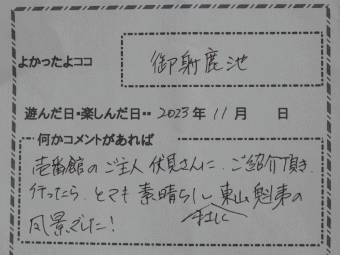 よかったよココ 御射鹿池
遊んだ日・楽しんだ日・・ 2023年 11月 日
何かコメントがあれば
壱番館のご主人 伏見さんに、ご紹介頂き
行ったら、とても素晴らしく 東山魁夷の
正に
風景でした!